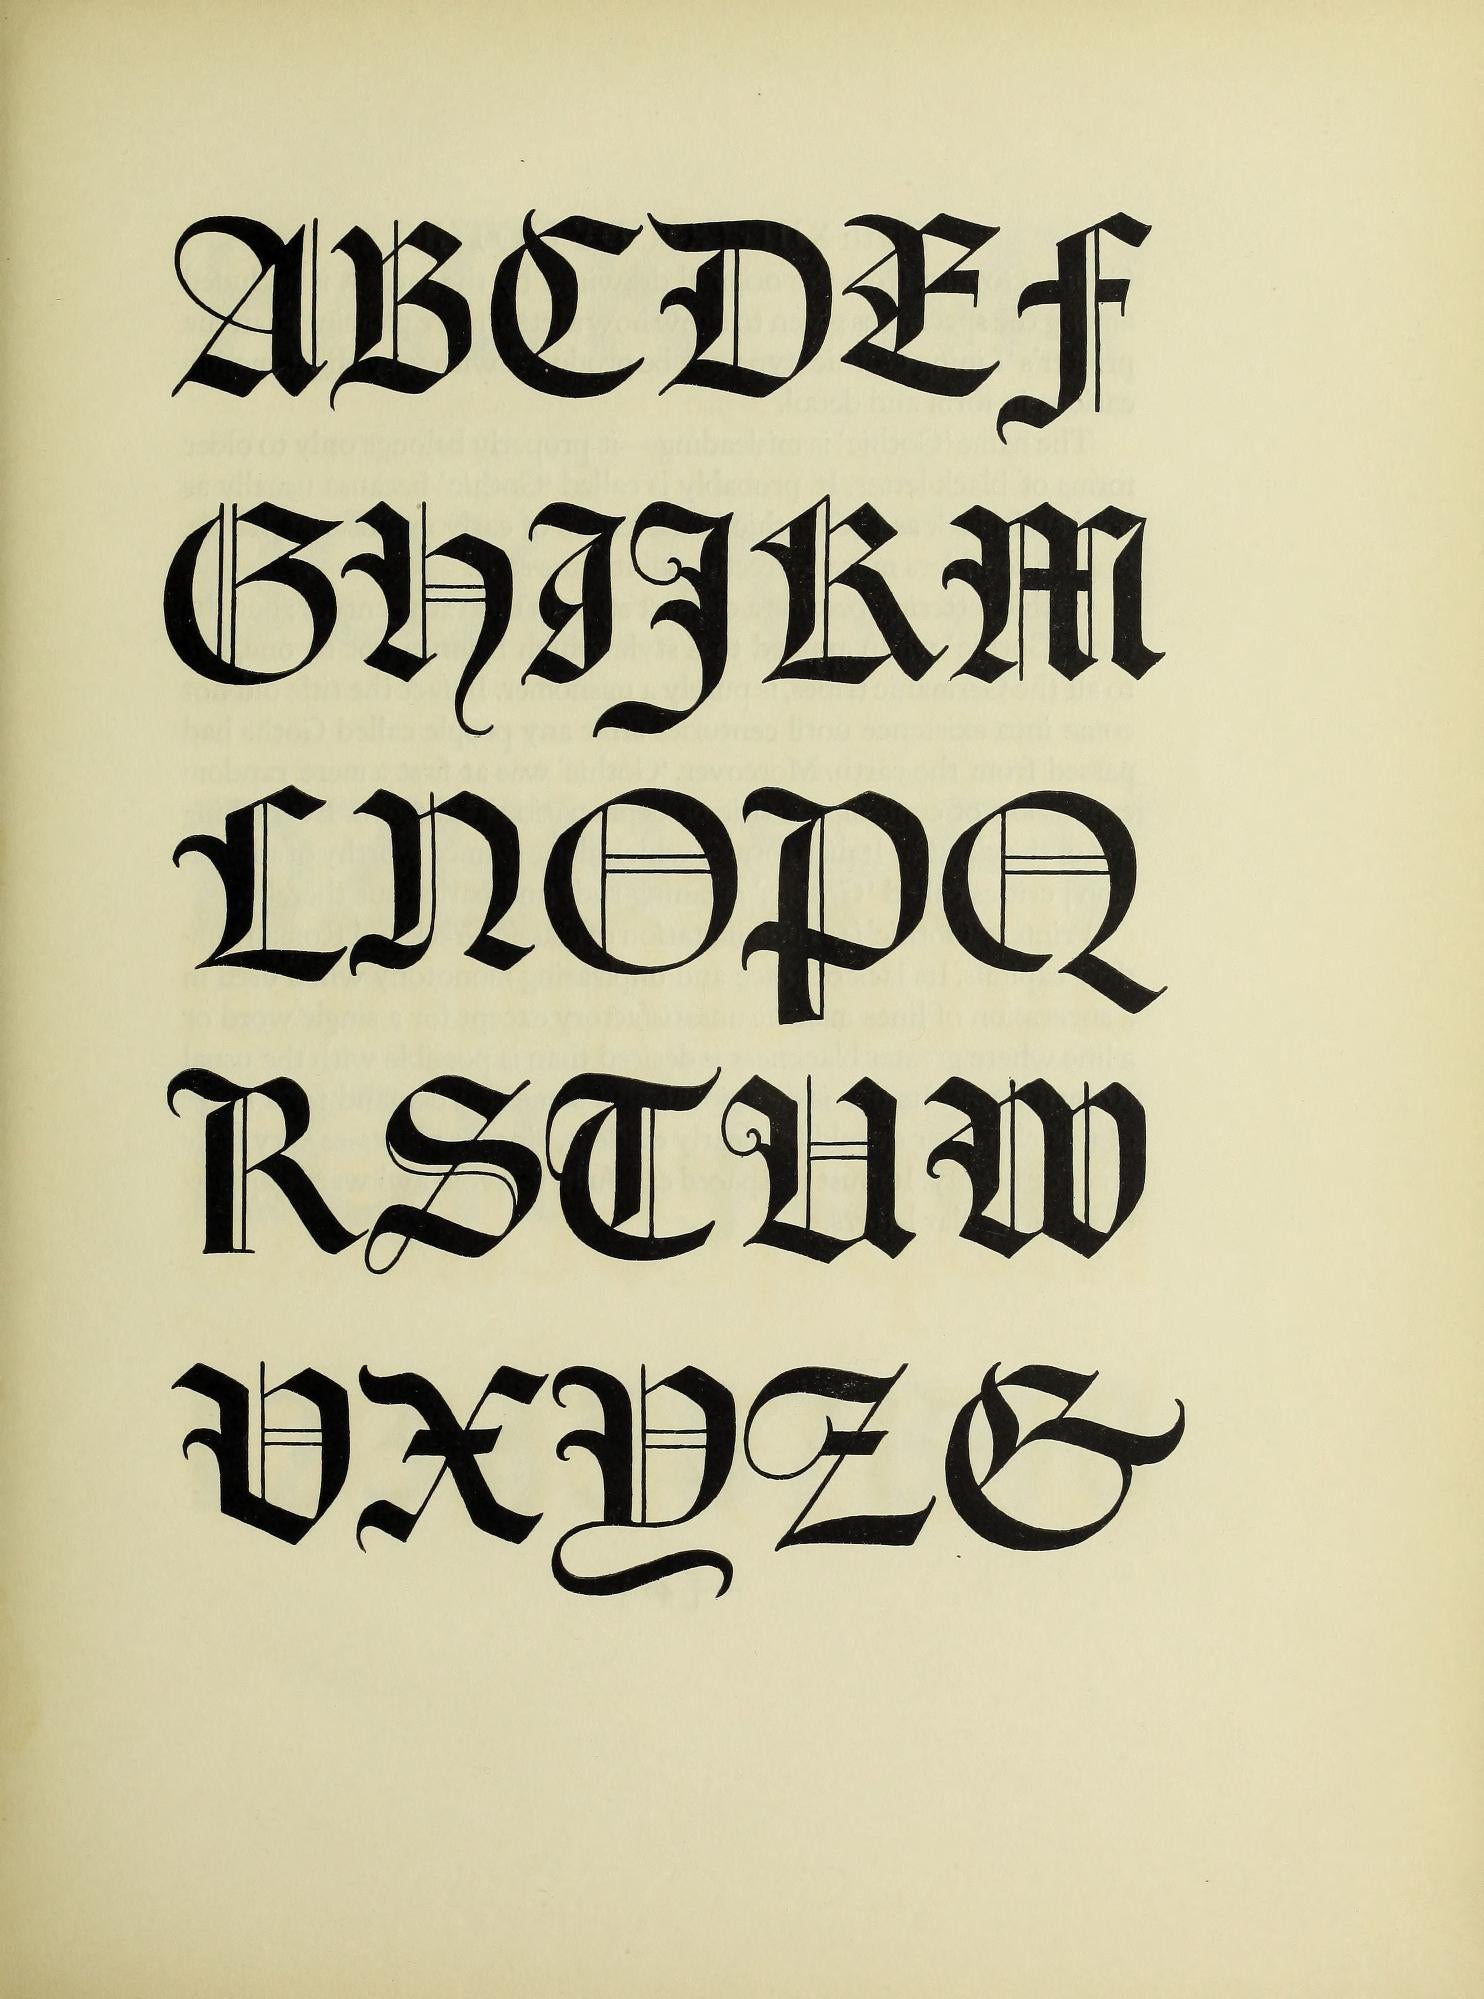 ABCDEF
GHIJKM
LNOPQ
RSTUW
VXYZ&